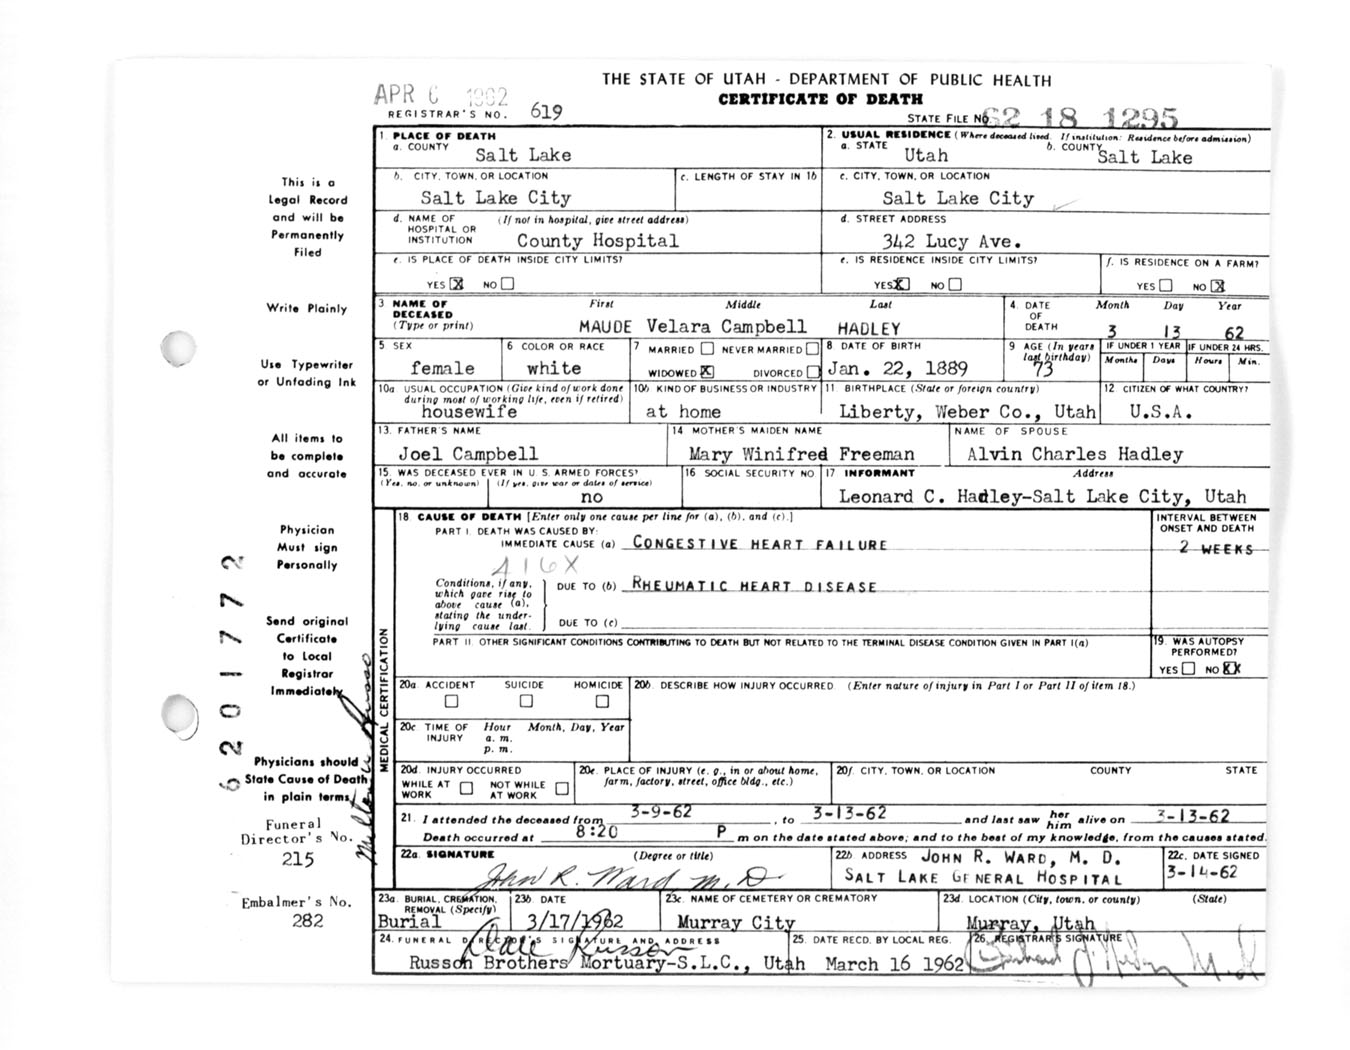 THE STATE OF UTAH - DEPARTMENT OF PUBLIC HEALTH
APR 6 1962
CERTIFICATE OF DEATH
REGISTRAR'S NO. 619
STATE FILE No. 62 18 1295
1. PLACE OF DEATH
a. COUNTY Salt Lake
2. USUAL RESIDENCE (Where deceased lived. If institution: Residence before admission)
a. STATE Utah b. COUNTY Salt Lake
b. CITY, TOWN, OR LOCATION Salt Lake City
c. LENGTH OF STAY IN 1b
c. CITY, TOWN, OR LOCATION Salt Lake City
d. NAME OF HOSPITAL OR INSTITUTION (If not in hospital, give street address) County Hospital
d. STREET ADDRESS 342 Lucy Ave.
e. IS PLACE OF DEATH INSIDE CITY LIMITS?
YES X NO
e. IS RESIDENCE INSIDE CITY LIMITS?
YES X NO
f. IS RESIDENCE ON A FARM?
YES NO X
3 NAME OF DECEASED (Type or print)
First Middle Last
MAUDE Velara Campbell HADLEY
4. DATE OF DEATH Month Day Year
3 13 62
5 SEX female
6 COLOR OR RACE white
7 MARRIED NEVER MARRIED
WIDOWED X DIVORCED
8 DATE OF BIRTH Jan. 22, 1889
9 AGE (In years last birthday) 73
IF UNDER 1 YEAR Months Days
IF UNDER 24 HRS. Hours Min.
10a USUAL OCCUPATION (Give kind of work done during most of working life, even if retired) housewife
10b KIND OF BUSINESS OR INDUSTRY at home
11. BIRTHPLACE (State or foreign country) Liberty, Weber Co., Utah
12. CITIZEN OF WHAT COUNTRY? U.S.A.
13. FATHER'S NAME Joel Campbell
14 MOTHER'S MAIDEN NAME Mary Winifred Freeman
NAME OF SPOUSE Alvin Charles Hadley
15. WAS DECEASED EVER IN U.S. ARMED FORCES?
(Yes, no, or unknown) (If yes, give war or dates of service) no
16 SOCIAL SECURITY NO
17 INFORMANT Address
Leonard C. Hadley-Salt Lake City, Utah
18 CAUSE OF DEATH [Enter only one cause per line for (a), (b), and (c).]
INTERVAL BETWEEN ONSET AND DEATH
PART I. DEATH WAS CAUSED BY:
IMMEDIATE CAUSE (a) CONGESTIVE HEART FAILURE 2 WEEKS
416X
Conditions, if any, which gave rise to above cause (a), stating the underlying cause last.
DUE TO (b) RHEUMATIC HEART DISEASE
DUE TO (c)
PART II. OTHER SIGNIFICANT CONDITIONS CONTRIBUTING TO DEATH BUT NOT RELATED TO THE TERMINAL DISEASE CONDITION GIVEN IN PART I(a)
19. WAS AUTOPSY PERFORMED?
YES NO XX
20a. ACCIDENT SUICIDE HOMICIDE
20b. DESCRIBE HOW INJURY OCCURRED. (Enter nature of injury in Part I or Part II of item 18.)
20c TIME OF INJURY Hour Month, Day, Year
a. m.
p. m.
20d. INJURY OCCURRED
WHILE AT WORK NOT WHILE AT WORK
20e. PLACE OF INJURY (e. g., in or about home, farm, factory, street, office bldg., etc.)
20f. CITY, TOWN, OR LOCATION COUNTY STATE
21. I attended the deceased from 3-9-62, to 3-13-62 and last saw her him alive on 3-13-62
Death occurred at 8:20 P m on the date stated above; and to the best of my knowledge, from the causes stated.
22a. SIGNATURE (Degree or title)
John R. Ward M.D.
22b ADDRESS JOHN R. WARD, M. D.
SALT LAKE GENERAL HOSPITAL
22c. DATE SIGNED
3-14-62
23a. BURIAL, CREMATION, REMOVAL (Specify) Burial
23b. DATE 3/17/1962
23c. NAME OF CEMETERY OR CREMATORY Murray City
23d. LOCATION (City, town, or county) (State)
Murray, Utah
24. FUNERAL DIRECTOR'S SIGNATURE AND ADDRESS
Dale Russon
Russon Brothers Mortuary-S.L.C., Utah
25. DATE RECD. BY LOCAL REG. March 16 1962
26. REGISTRAR'S SIGNATURE
MEDICAL CERTIFICATION
This is a
Legal Record
and will be
Permanently
Filed
Write Plainly
Use Typewriter
or Unfading Ink
All items to
be complete
and accurate
Physician
Must sign
Personally
Send original
Certificate
to Local
Registrar
Immediately
Physicians should
State Cause of Death
in plain terms
Funeral
Director's No.
215
Embalmer's No.
282
6201772